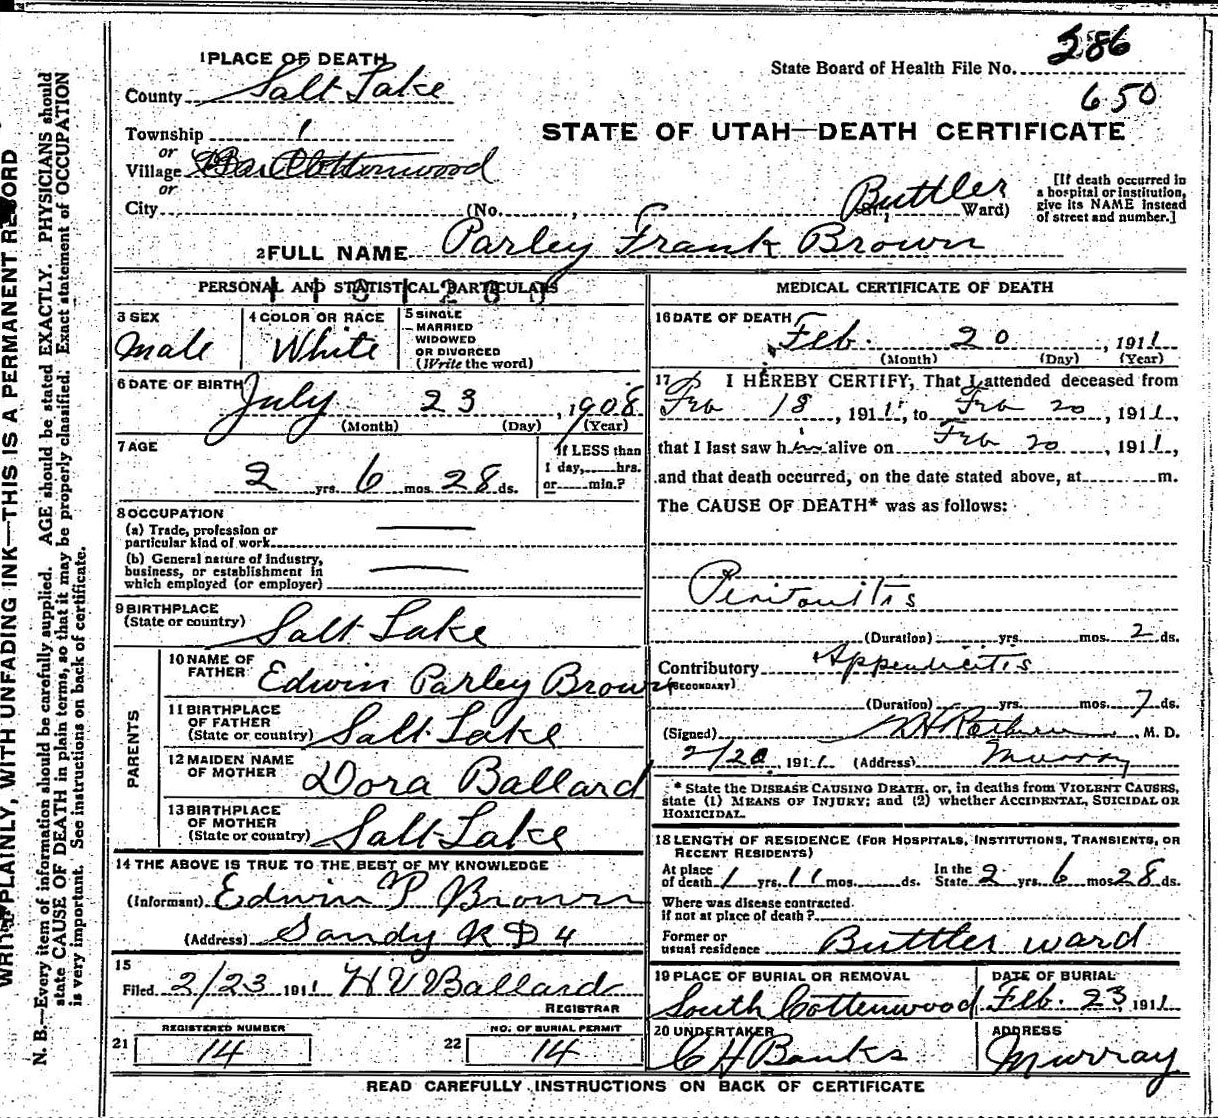 286
State Board of Health File No.
650
1 PLACE OF DEATH
County Salt Lake
Township 1
or
Village Cottonwood
or
City (No. , Buttler St.; Ward)
STATE OF UTAH—DEATH CERTIFICATE
[If death occurred in
a hospital or institution,
give its NAME instead
of street and number.]
2 FULL NAME Parley Frank Brown
PERSONAL AND STATISTICAL PARTICULARS
3 SEX
Male
4 COLOR OR RACE
White
5 SINGLE
MARRIED
WIDOWED
OR DIVORCED
(Write the word)
6 DATE OF BIRTH
July 23, 1908
(Month) (Day) (Year)
7 AGE
2 yrs. 6 mos. 28 ds.
If LESS than
1 day, hrs.
or min.?
8 OCCUPATION
(a) Trade, profession or
particular kind of work
(b) General nature of Industry,
business, or establishment in
which employed (or employer)
9 BIRTHPLACE
(State or country) Salt Lake
PARENTS
10 NAME OF
FATHER Edwin Parley Brown
11 BIRTHPLACE
OF FATHER
(State or country) Salt Lake
12 MAIDEN NAME
OF MOTHER Dora Ballard
13 BIRTHPLACE
OF MOTHER
(State or country) Salt Lake
14 THE ABOVE IS TRUE TO THE BEST OF MY KNOWLEDGE
(Informant) Edwin P Brown
(Address) Sandy R D 4
15
Filed 2/23 1911 H V Ballard
REGISTRAR
REGISTERED NUMBER
21 14
NO. OF BURIAL PERMIT
22 14
MEDICAL CERTIFICATE OF DEATH
16 DATE OF DEATH
Feb. 20, 1911
(Month) (Day) (Year)
17 I HEREBY CERTIFY, That I attended deceased from
Feb 18, 1911, to Feb 20, 1911,
that I last saw him alive on Feb 20, 1911,
and that death occurred, on the date stated above, at m.
The CAUSE OF DEATH* was as follows:
Peritonitis
(Duration) yrs. mos. 2 ds.
Contributory Appendicitis
(SECONDARY)
(Duration) yrs. mos. 7 ds.
(Signed) M. D.
2/20, 1911 (Address) Murray
* State the DISEASE CAUSING DEATH, or, in deaths from VIOLENT CAUSES,
state (1) MEANS OF INJURY; and (2) whether ACCIDENTAL, SUICIDAL OR
HOMICIDAL.
18 LENGTH OF RESIDENCE (FOR HOSPITALS, INSTITUTIONS, TRANSIENTS, OR
RECENT RESIDENTS)
At place
of death 1 yrs. 11 mos. ds. In the State 2 yrs. 6 mos. 28 ds.
Where was disease contracted.
if not at place of death?
Former or
usual residence Buttler ward
19 PLACE OF BURIAL OR REMOVAL
South Cottonwood
DATE OF BURIAL
Feb. 23 1911
20 UNDERTAKER
C H Banks
ADDRESS
Murray
READ CAREFULLY INSTRUCTIONS ON BACK OF CERTIFICATE
WRITE PLAINLY, WITH UNFADING INK—THIS IS A PERMANENT RECORD
N. B.—Every item of information should be carefully supplied. AGE should be stated EXACTLY. PHYSICIANS should
state CAUSE OF DEATH in plain terms, so that it may be properly classified. Exact statement of OCCUPATION
is very important. See instructions on back of certificate.